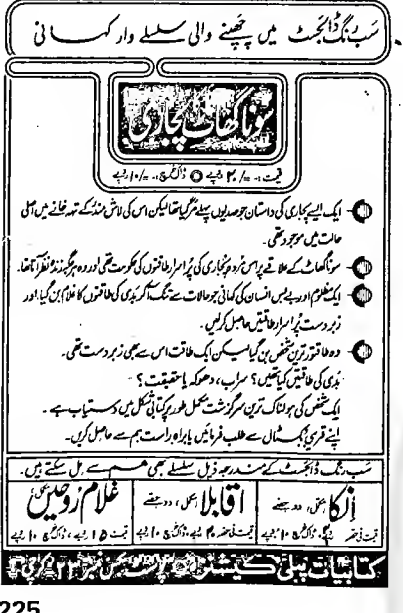 سب رنگ ڈائجسٹ میں چھپنے والی سلسلے وار کہانی
سونا گھاٹ کا پجاری
قیمت :- /۲۰ روپے ڈاک خرچ :- /۱۰ روپے
ایک ایسے پجاری کی داستان جو صدیوں پہلے مر گیا تھا لیکن اس کی لاش مندر کے تہہ خانے میں اصلی
حالت میں موجود تھی۔
سونا گھاٹ کے علاقے پر اس مردہ پجاری کی پُراسرار طاقتوں کی حکومت تھی اور وہ ہر جگہ زندہ نظر آتا تھا۔
ایک مظلوم اور بے بس انسان کی کہانی جو حالات سے تنگ آکر بدی کی طاقتوں کا غلام بن گیا اور
زبردست پُراسرار طاقتیں حاصل کرلیں۔
وہ طاقتور ترین شخص بن گیا لیکن ایک طاقت اس سے بھی زبردست تھی۔
بدی کی طاقتیں کیا تھیں؟ سراب، دھوکہ یا حقیقت؟
ایک شخص کی ہولناک ترین سرگزشت مکمل طور پر کتابی شکل میں دستیاب ہے۔
اپنے قریبی بکسٹال سے طلب فرمائیں یا براہ راست ہم سے حاصل کریں۔
سب رنگ ڈائجسٹ کے مندرجہ ذیل سلسلے بھی ہم سے مل سکتے ہیں۔
انکا مکمل، دو حصے
قیمت فی حصہ ۲۰ روپے، ڈاک خرچ ۱۰ روپے
اقابلا مکمل، دو حصے
قیمت فی حصہ ۲۰ روپے، ڈاک خرچ ۱۰ روپے
غلام روحیں مکمل
قیمت ۱۵ روپے، ڈاک خرچ ۱۰ روپے
کتابیات پبلی کیشنز پوسٹ بکس نمبر ۲۳ کراچی
225